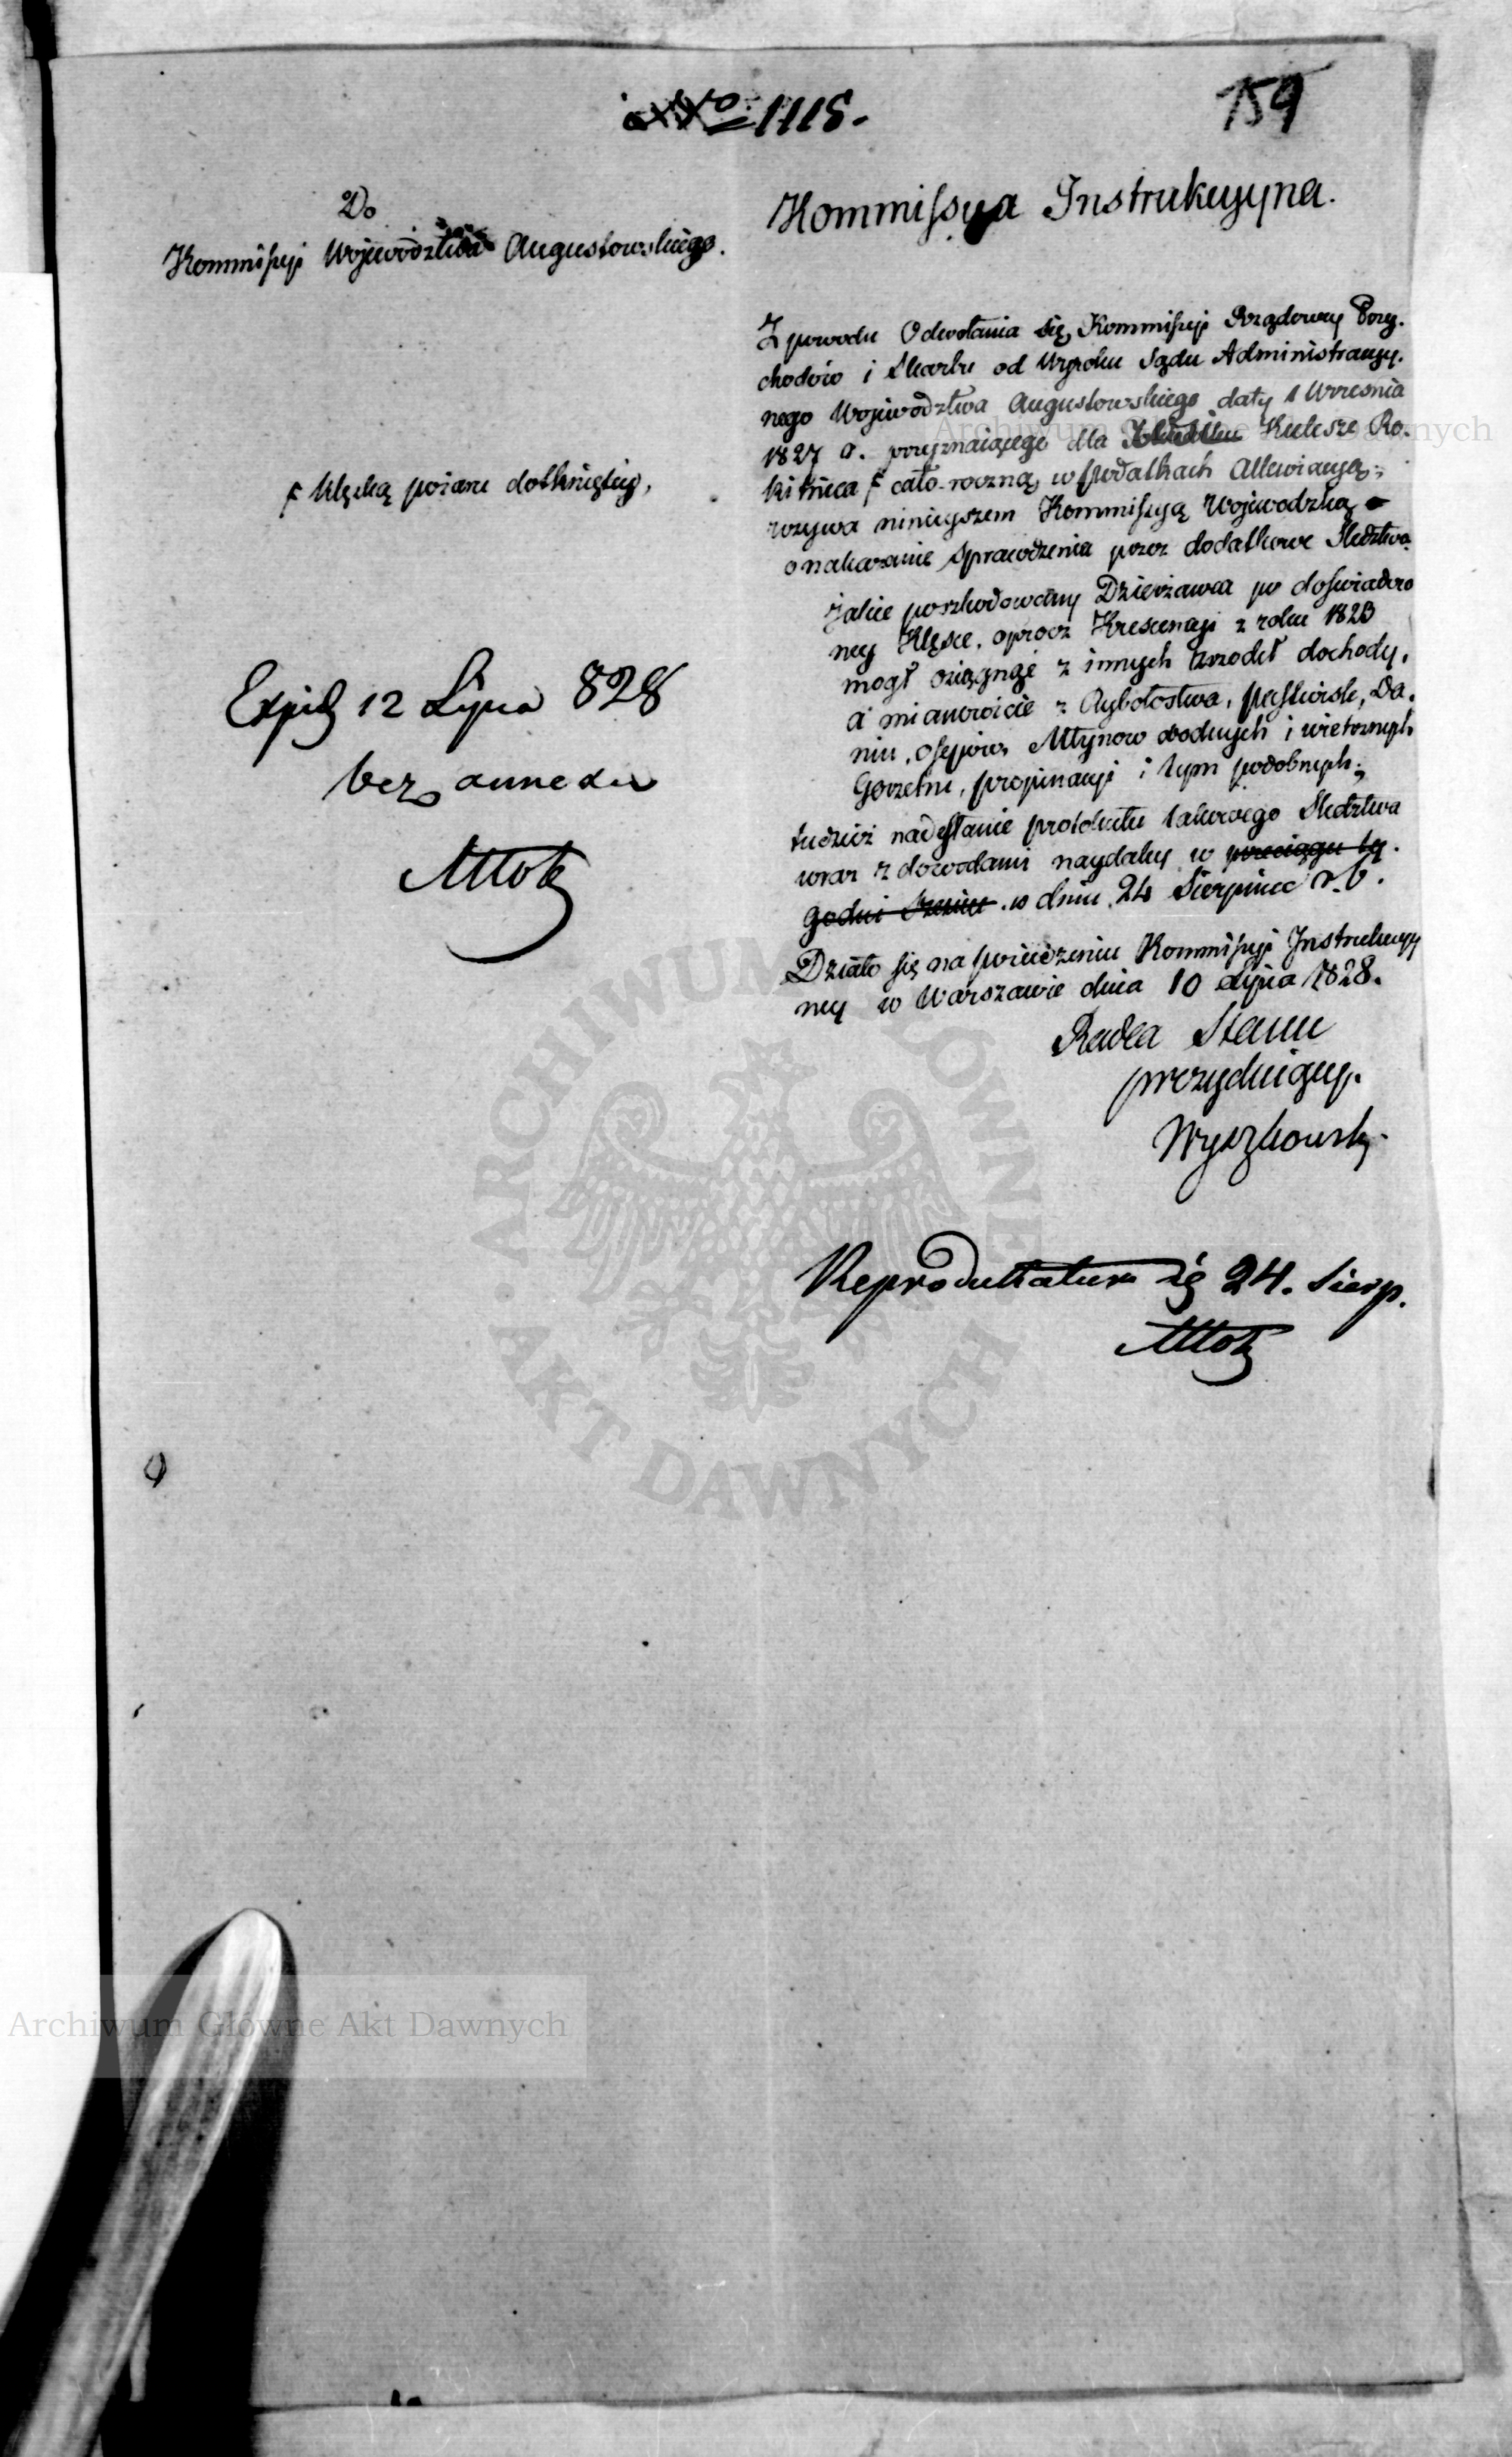 No 1118.
159
Do
Kommissyi Województwa Augustowskiego.
Kommissya Instrukcyyna.
Z powodu Odwołania się Kommissyi Rządowey Przy-
chodów i Skarbu od Wyroku Sądu Administracyy-
nego Województwa Augustowskiego daty 1 Września
1827 r. przyznaiącego dla Kulesze Ro-
kitnica F cało-roczną w podatkach Allewiacyą;
wzywa ninieyszem Kommissyą Wojewodzką
o nakazanie sprawdzenia przez dodatkowe Śledztwo
F klęską pożaru dotkniętey,
Jakie poszkodowany Dzierżawca po doświadczo
ney Klęsce, oprócz Krescencyi z roku 1823
mogł osiągnąć z innych źrzodeł dochody,
a mianowicie z Rybołostwa, pastwisk, Da-
nin, osepów, Młynow wodnych i wietrznych
Gorzelni, propinacyi i tym podobnych;
tudzież nadesłanie protokułu takowego Śledztwa
wraz z dowodami naydaley w przeciągu ty-
godni w dniu 24 Sierpnia r. b.
Działo się na posiedzeniu Kommissyi Instrukcyy
ney w Warszawie dnia 10 Lipca 1828.
Radca Stanu
prezyduiący.
Wyszkowski
Exped 12 Lipca 828
bez annexu
Młok
Reproducatur 24. Sierp.
Młok
Archiwum Główne Akt Dawnych
ARCHIWUM GŁÓWNE AKT DAWNYCH
Archiwum Główne Akt Dawnych